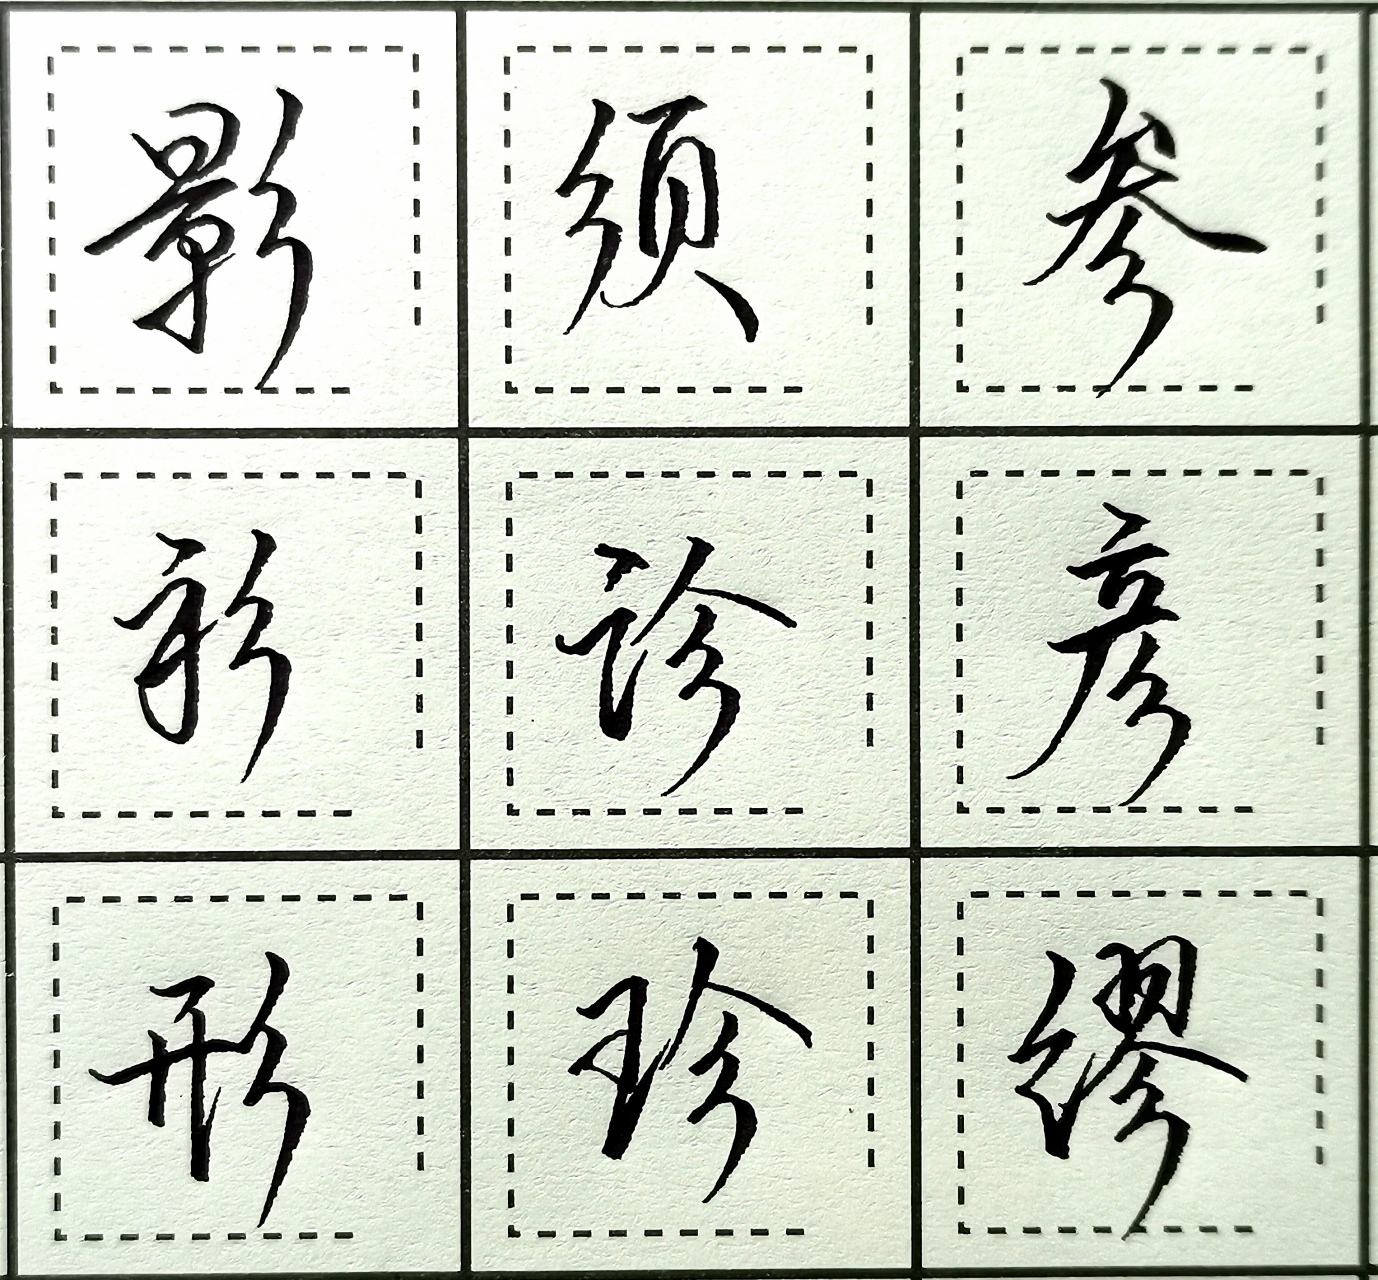 影须参
彩诊彦
形珍缪